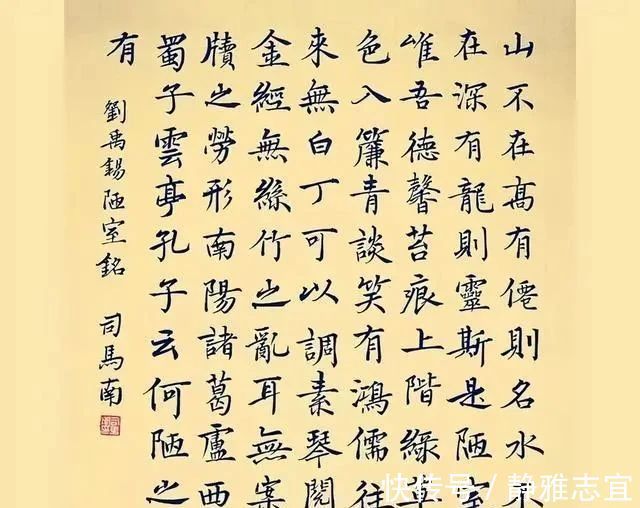 山不在髙有僊則名水不
在深有龍則靈斯是陋室
唯吾德馨苔痕上階綠草
色入簾青談笑有鴻儒往
來無白丁可以調素琴閱
金經無絲竹之亂耳無案
牘之勞形南陽諸葛廬西
蜀子雲亭孔子云何陋之
有
劉禹錫陋室銘 司馬南
快传号 / 静雅志宜